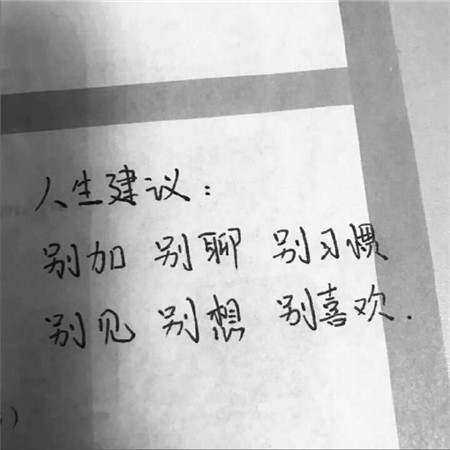 人生建议：
别加 别聊 别习惯
别见 别想 别喜欢.